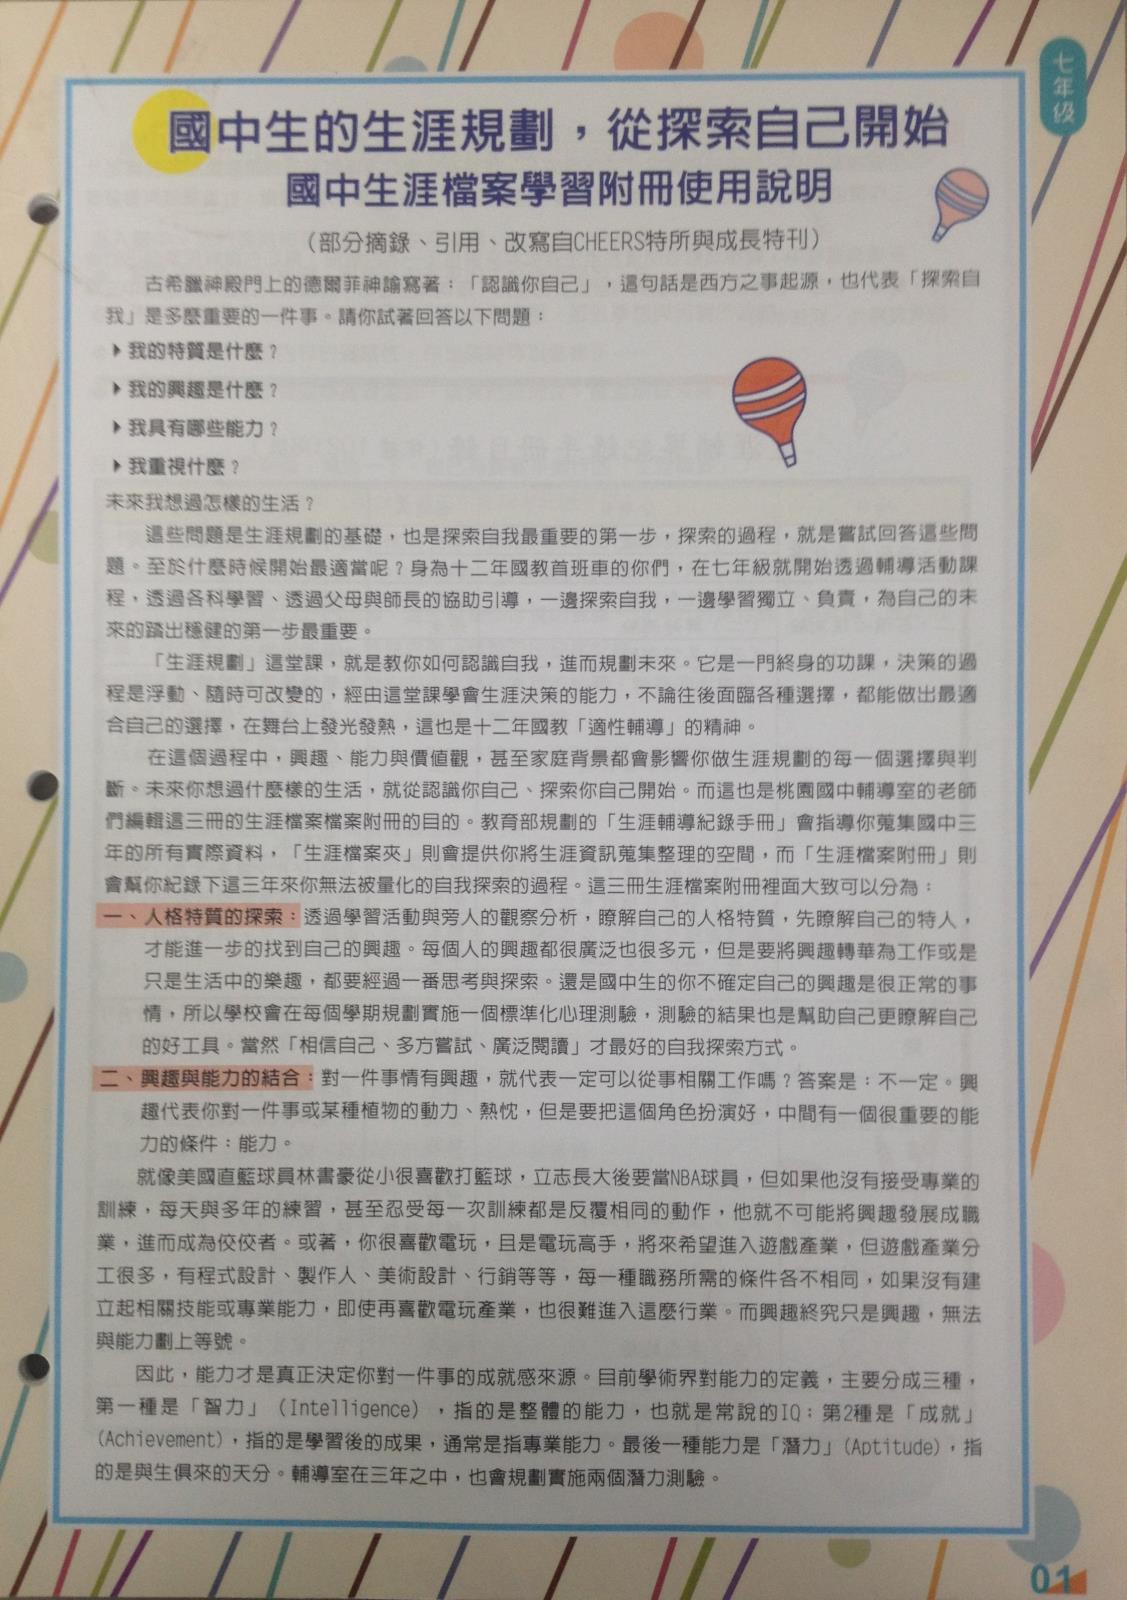 七年級
國中生的生涯規劃，從探索自己開始
國中生涯檔案學習附冊使用說明
（部分摘錄、引用、改寫自CHEERS特所與成長特刊）
古希臘神殿門上的德爾菲神諭寫著：「認識你自己」，這句話是西方之事起源，也代表「探索自
我」是多麼重要的一件事。請你試著回答以下問題：
▶我的特質是什麼？
▶我的興趣是什麼？
▶我具有哪些能力？
▶我重視什麼？
未來我想過怎樣的生活？
這些問題是生涯規劃的基礎，也是探索自我最重要的第一步，探索的過程，就是嘗試回答這些問
題。至於什麼時候開始最適當呢？身為十二年國教首班車的你們，在七年級就開始透過輔導活動課
程，透過各科學習、透過父母與師長的協助引導，一邊探索自我，一邊學習獨立、負責，為自己的未
來的踏出穩健的第一步最重要。
「生涯規劃」這堂課，就是教你如何認識自我，進而規劃未來。它是一門終身的功課，決策的過
程是浮動、隨時可改變的，經由這堂課學會生涯決策的能力，不論往後面臨各種選擇，都能做出最適
合自己的選擇，在舞台上發光發熱，這也是十二年國教「適性輔導」的精神。
在這個過程中，興趣、能力與價值觀，甚至家庭背景都會影響你做生涯規劃的每一個選擇與判
斷。未來你想過什麼樣的生活，就從認識你自己、探索你自己開始。而這也是桃園國中輔導室的老師
們編輯這三冊的生涯檔案檔案附冊的目的。教育部規劃的「生涯輔導紀錄手冊」會指導你蒐集國中三
年的所有實際資料，「生涯檔案夾」則會提供你將生涯資訊蒐集整理的空間，而「生涯檔案附冊」則
會幫你紀錄下這三年來你無法被量化的自我探索的過程。這三冊生涯檔案附冊裡面大致可以分為：
一、人格特質的探索：透過學習活動與旁人的觀察分析，瞭解自己的人格特質，先瞭解自己的特人，
才能進一步的找到自己的興趣。每個人的興趣都很廣泛也很多元，但是要將興趣轉華為工作或是
只是生活中的樂趣，都要經過一番思考與探索。還是國中生的你不確定自己的興趣是很正常的事
情，所以學校會在每個學期規劃實施一個標準化心理測驗，測驗的結果也是幫助自己更瞭解自己
的好工具。當然「相信自己、多方嘗試、廣泛閱讀」才最好的自我探索方式。
二、興趣與能力的結合：對一件事情有興趣，就代表一定可以從事相關工作嗎？答案是：不一定。興
趣代表你對一件事或某種植物的動力、熱忱，但是要把這個角色扮演好，中間有一個很重要的能
力的條件：能力。
就像美國直籃球員林書豪從小很喜歡打籃球，立志長大後要當NBA球員，但如果他沒有接受專業的
訓練，每天與多年的練習，甚至忍受每一次訓練都是反覆相同的動作，他就不可能將興趣發展成職
業，進而成為佼佼者。或著，你很喜歡電玩，且是電玩高手，將來希望進入遊戲產業，但遊戲產業分
工很多，有程式設計、製作人、美術設計、行銷等等，每一種職務所需的條件各不相同，如果沒有建
立起相關技能或專業能力，即使再喜歡電玩產業，也很難進入這麼行業。而興趣終究只是興趣，無法
與能力劃上等號。
因此，能力才是真正決定你對一件事的成就感來源。目前學術界對能力的定義，主要分成三種，
第一種是「智力」（Intelligence），指的是整體的能力，也就是常說的IQ；第2種是「成就」
（Achievement），指的是學習後的成果，通常是指專業能力。最後一種能力是「潛力」（Aptitude），指
的是與生俱來的天分。輔導室在三年之中，也會規劃實施兩個潛力測驗。
01